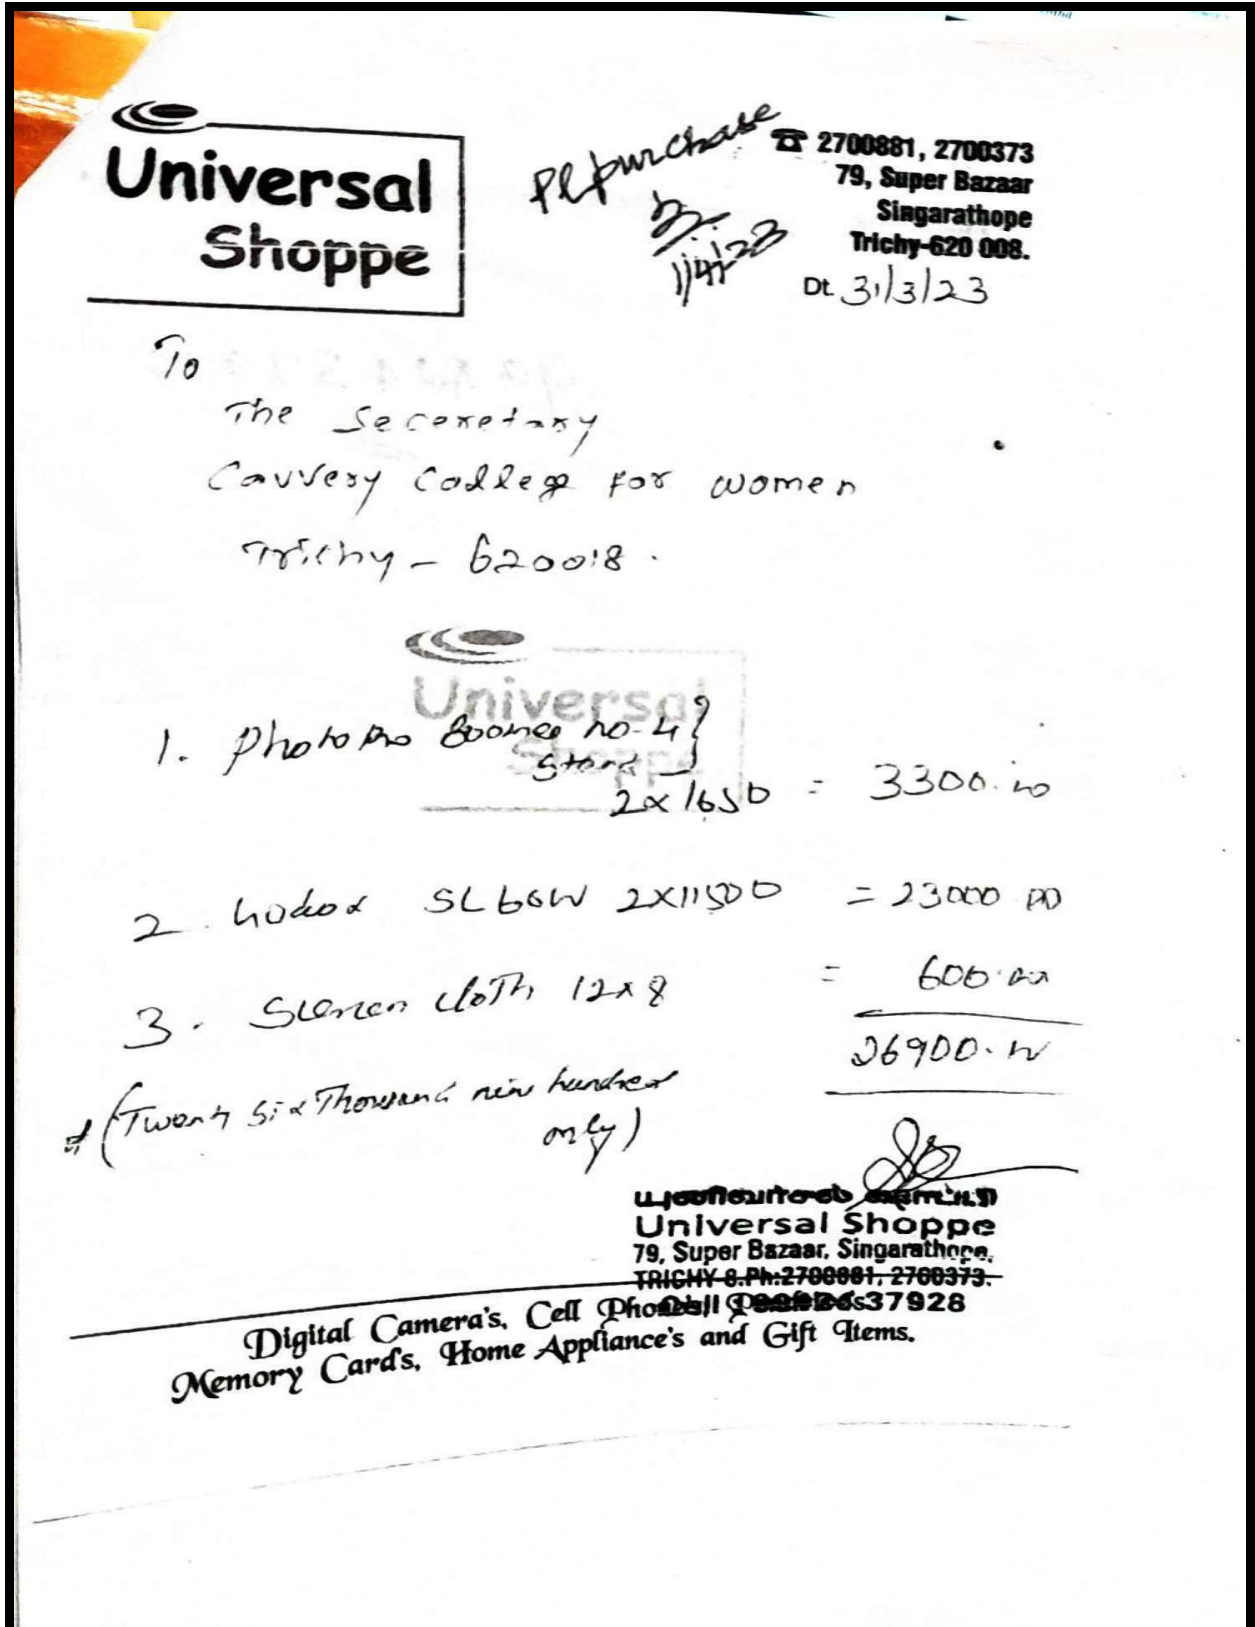 Universal
Shoppe
Pl purchase
1/4/23
☎ 2700881, 2700373
79, Super Bazaar
Singarathope
Trichy-620 008.
Dt. 31/3/23
To
The Secretary
Cauvery College for women
Trichy - 620018.
Universal
Shoppe
1. Photo pro Boomer no-4 }
Stand
2x1650 = 3300.00
2. Godox SL60W 2x11500 = 23000.00
3. Screen cloth 12x8 = 600.00
26900.00
(Twenty Six Thousand nine hundred
only)
யுனிவர்சல்
Universal Shoppe
79, Super Bazaar, Singarathope,
TRICHY-8.Ph:2700881, 2700373.
37928
Digital Camera's, Cell Phone's,
Memory Card's, Home Appliance's and Gift Items.